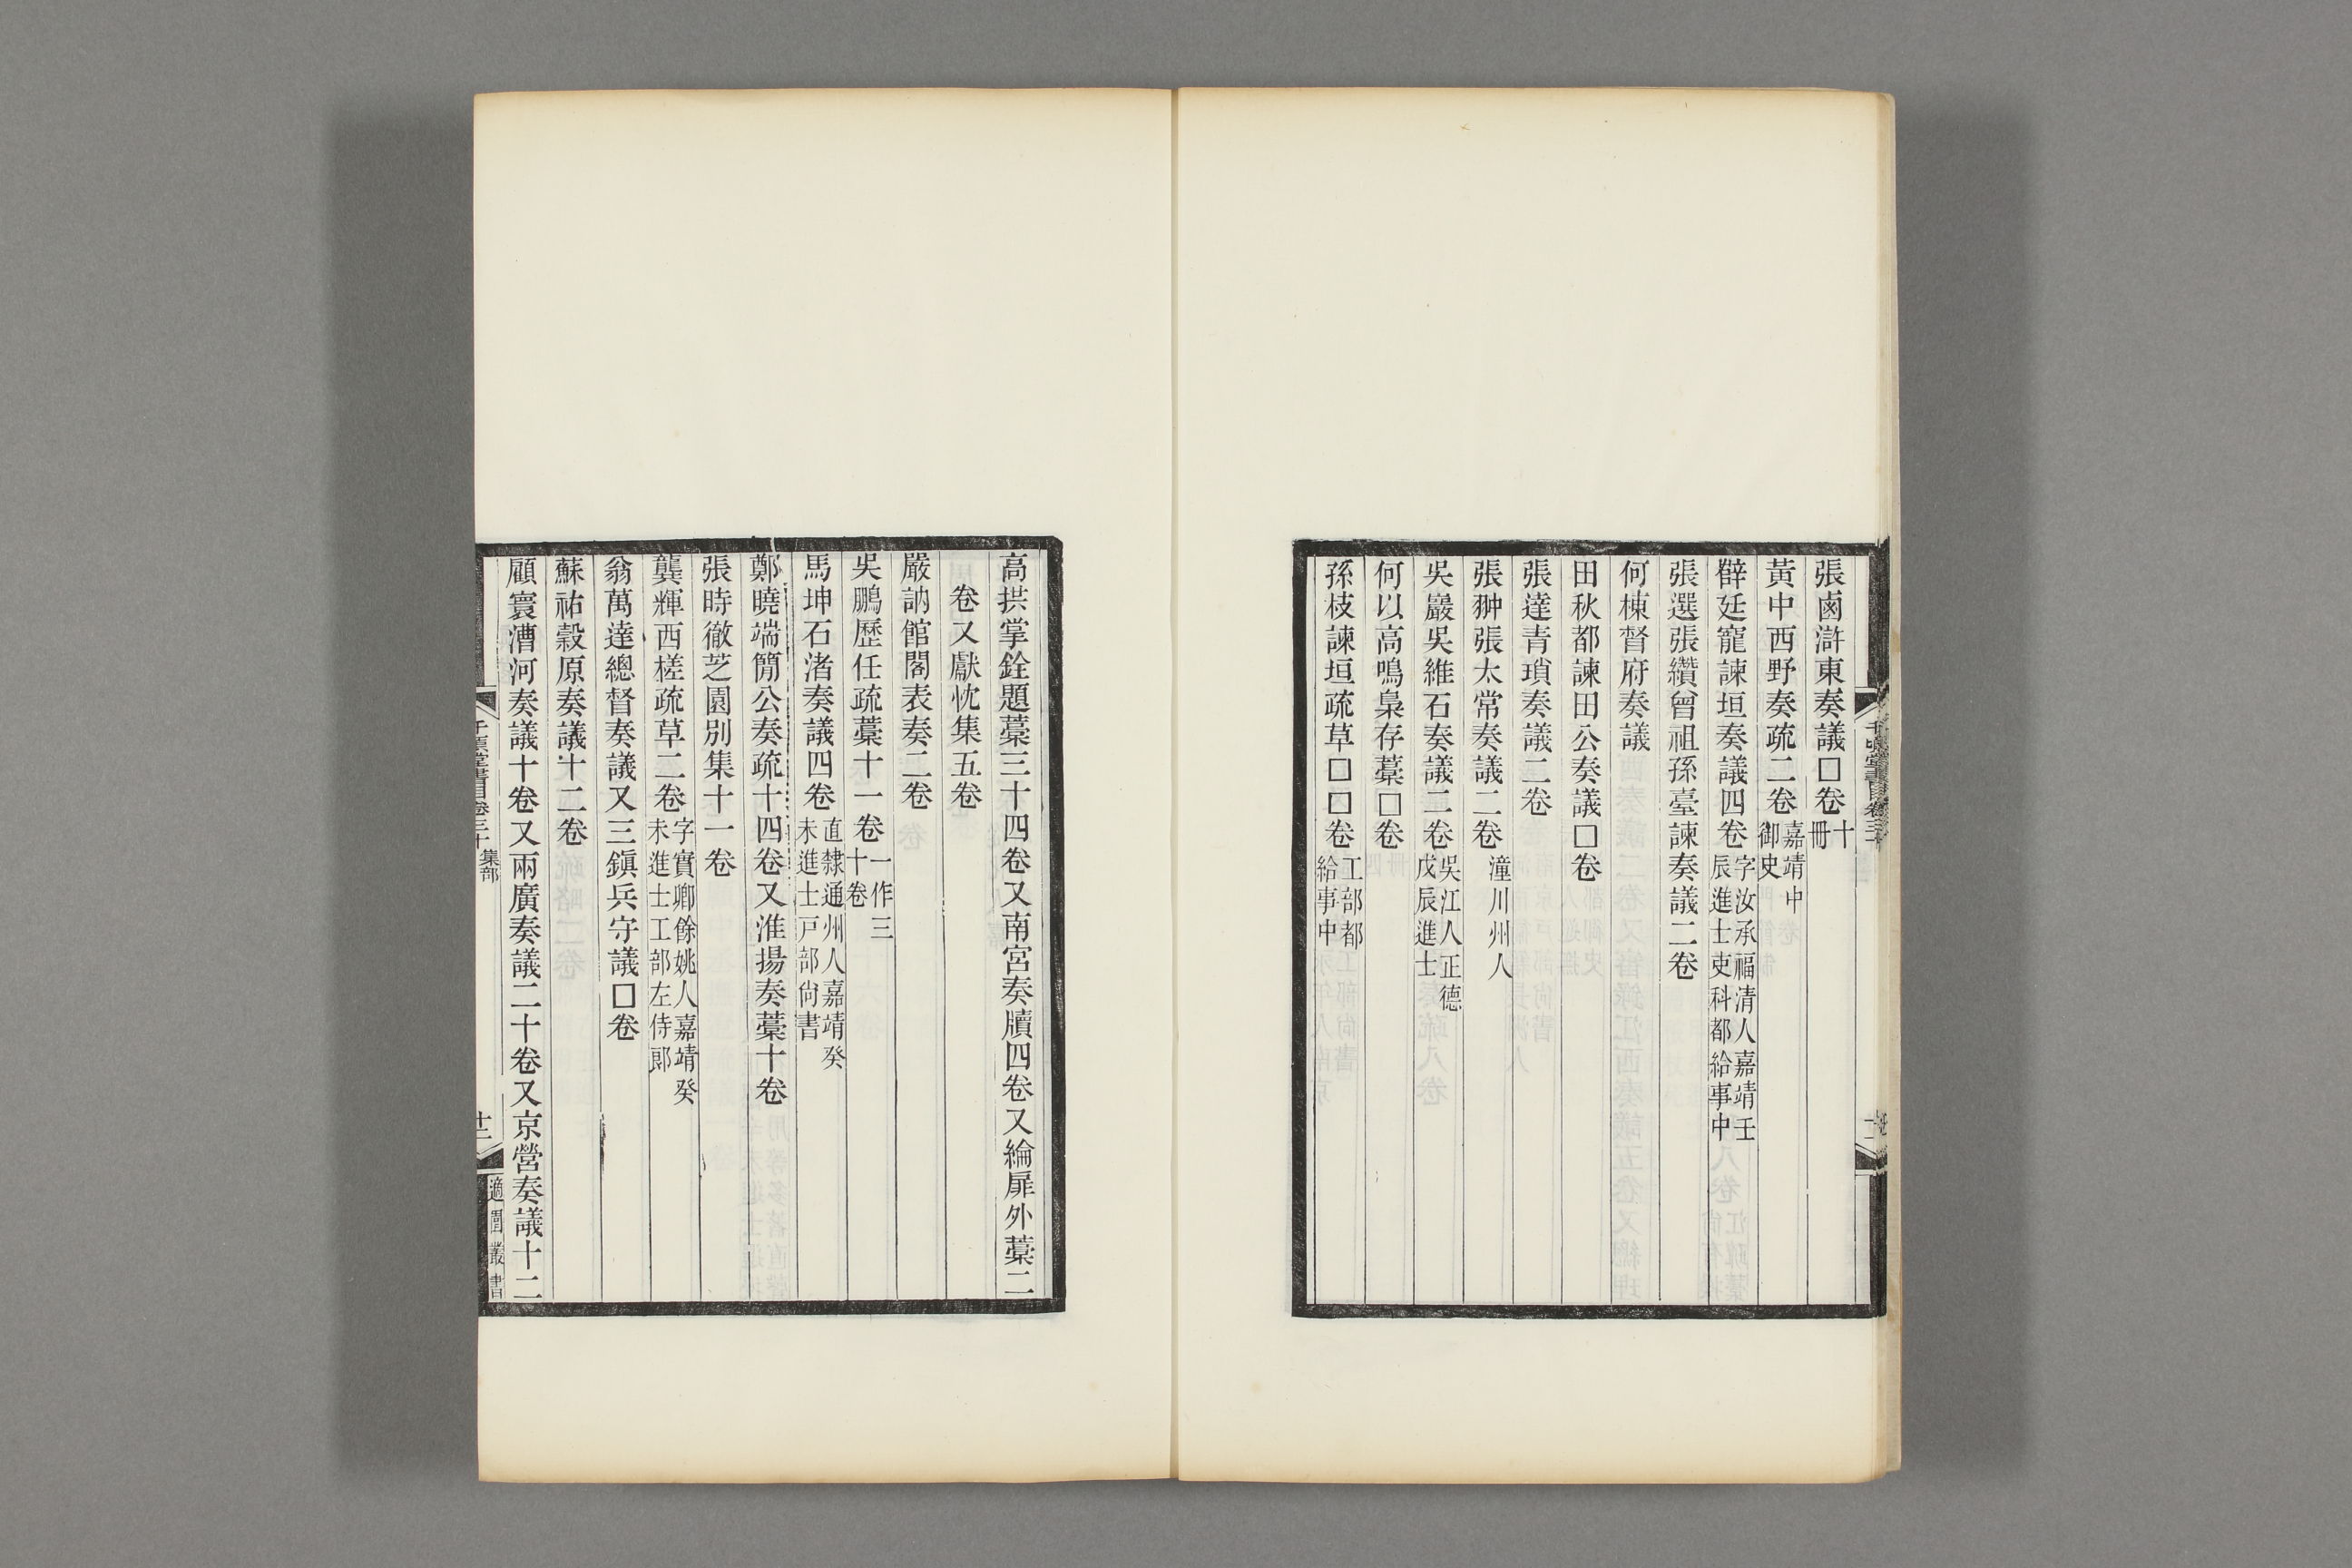 張鹵滸東奏議□卷十冊
黃中西野奏疏二卷嘉靖中御史
薛廷寵諫垣奏議四卷字汝承福清人嘉靖壬辰進士吏科都給事中
張選張纘曾祖孫臺諫奏議二卷
何棟督府奏議
田秋都諫田公奏議□卷
張達青瑣奏議二卷
張翀張太常奏議二卷潼川州人
吳巖吳維石奏議二卷吳江人正德戊辰進士
何以高鳴梟存藁□卷
孫枝諫垣疏草□□卷工部都給事中
高拱掌銓題藁三十四卷又南宮奏牘四卷又綸扉外藁二
卷又獻忱集五卷
嚴訥館閣表奏二卷
吳鵬歷任疏藁十一卷一作三十卷
馬坤石渚奏議四卷直隸通州人嘉靖癸未進士戸部尙書
鄭曉端簡公奏疏十四卷又淮揚奏藁十卷
張時徹芝園別集十一卷
龔輝西槎疏草二卷字實卿餘姚人嘉靖癸未進士工部左侍郎
翁萬達總督奏議又三鎭兵守議□卷
蘇祐穀原奏議十二卷
顧寰漕河奏議十卷又兩廣奏議二十卷又京營奏議十二
千頃堂書目卷三十 集部
十二
適園叢書